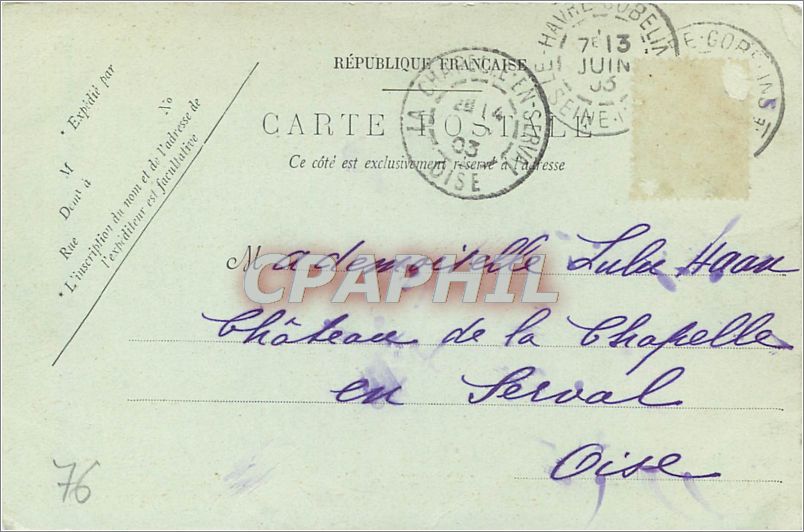 RÉPUBLIQUE FRANÇAISE
CARTE POSTALE
Ce côté est exclusivement réservé à l'adresse
* Expédié par
M
Demt à
Rue
No
* L'inscription du nom et de l'adresse de
l'expéditeur est facultative
LE HAVRE-GOBELINS
7E 13
JUIN
03
SEINE-
E-GOBELINS
LA CHAPELLE-EN-SERVAL
14
03
OISE
Mademoiselle Lulu Haan
Château de la Chapelle
en Serval
Oise
CPAPHIL
76